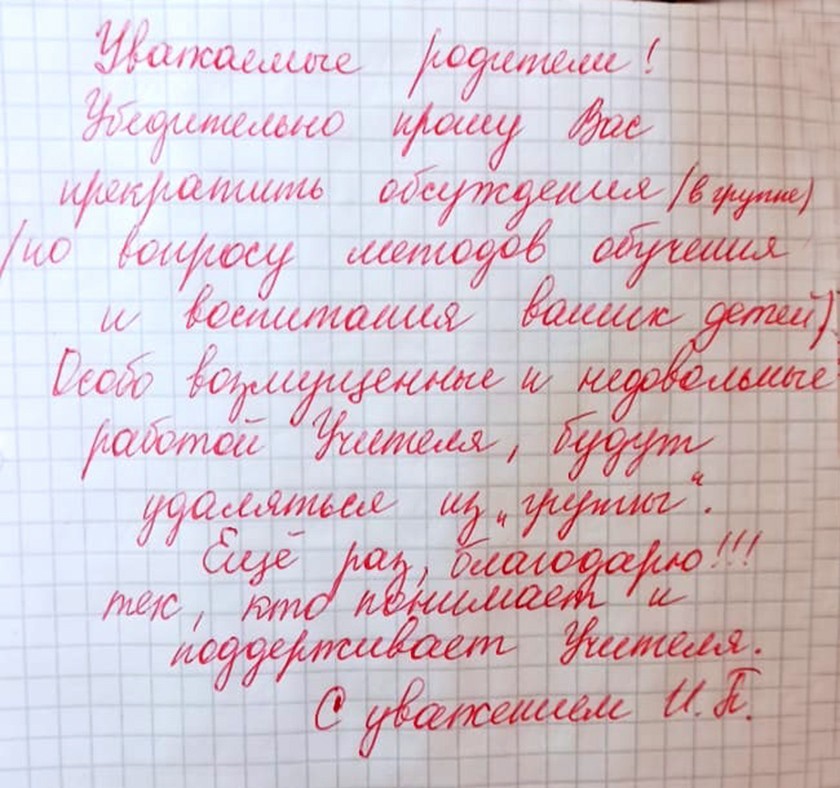 Уважаемые родители!
Убедительно прошу Вас
прекратить обсуждения (в группе)
(по вопросу методов обучения
и воспитания ваших детей)
Особо возмущенные и недовольные
работой Учителя, будут
удаляться из „группы".
Ещё раз, благодарю!!!
тех, кто понимает и
поддерживает Учителя.
С уважением И.П.